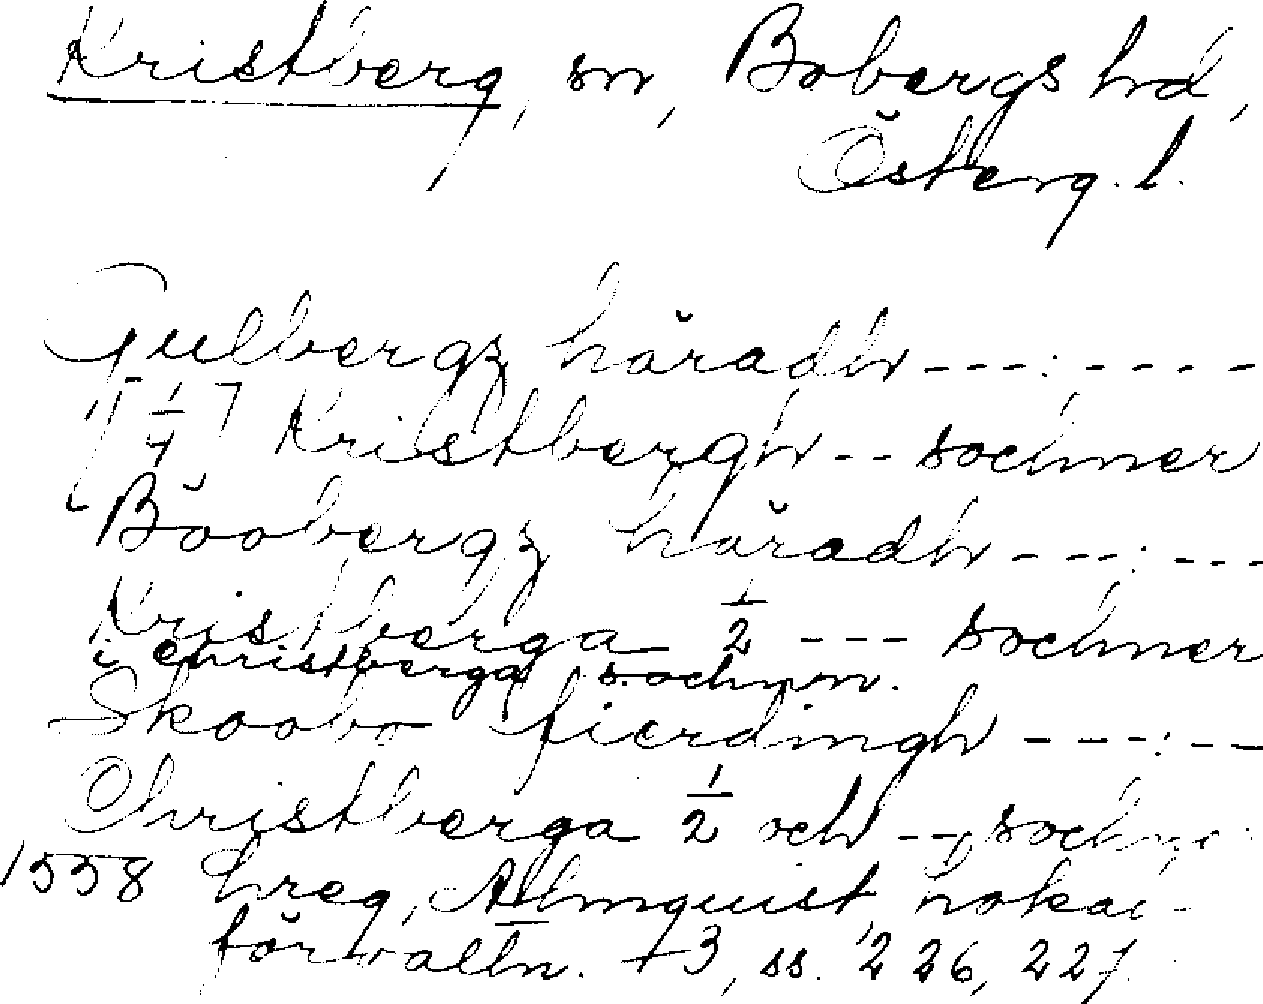 Kristberg, sn, Bobergs hd,
Österg. l.
Gulbergz häradh ---:----
[¼] Kristbergh -- sochner
Boobergz häradh ---:---
Kristberga ½ --- sochner
i Christberga sochnn.
Skoobo fierdingh ---:--
Christberga ½ och --, sochne
1558 hreg, Almquist, Lokal-
förvaltn. +3, ss. 226, 227.